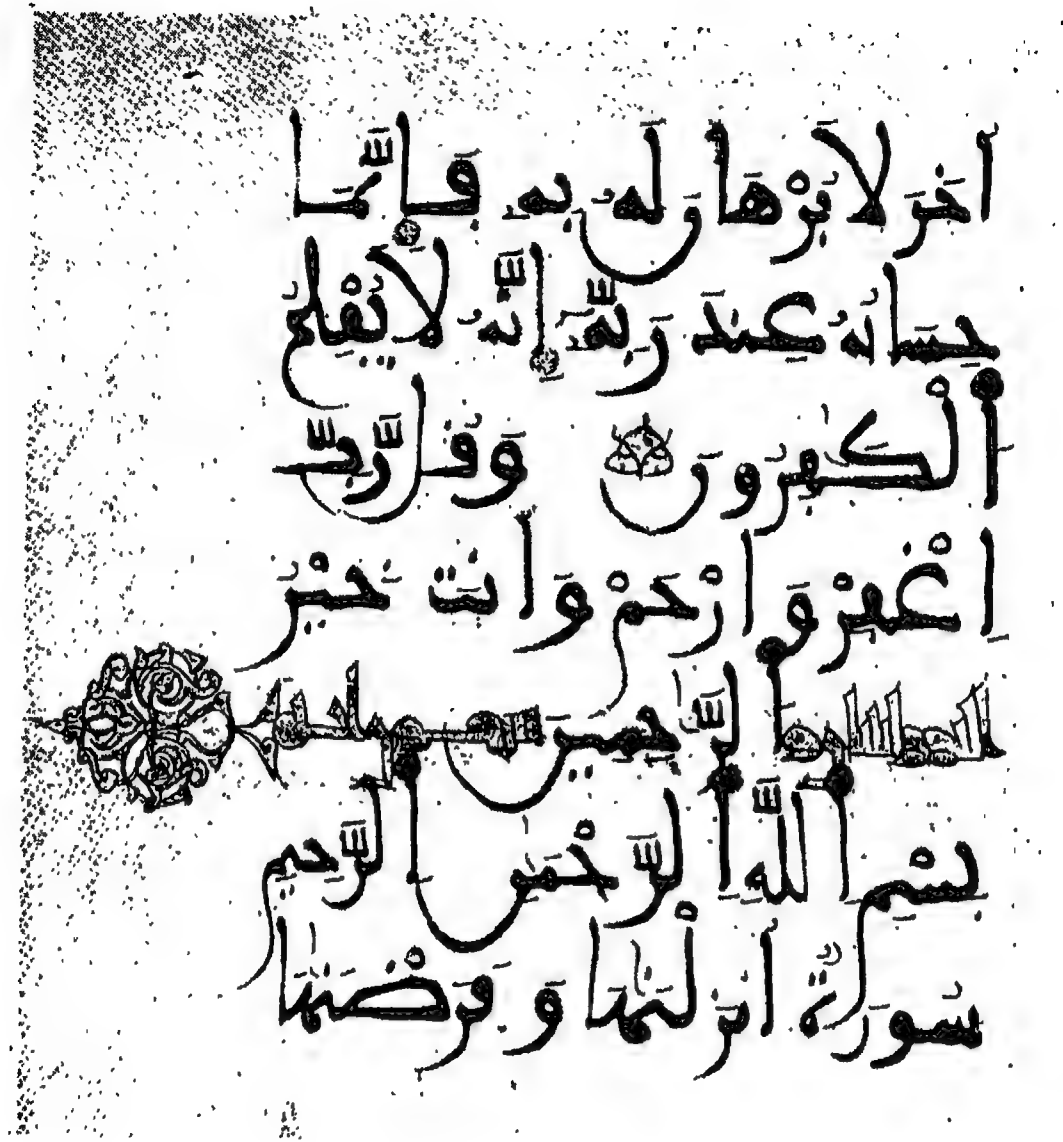 اخَرَ لَا بُرْهَانَ لَهُ بِهِ فَإِنَّمَا
حِسَابُهُ عِندَ رَبِّهِ إِنَّهُ لَا يُفْلِحُ
ٱلْكَٰفِرُونَ وَقُل رَّبِّ
اغْفِرْ وَارْحَمْ وَأَنتَ خَيْرُ
ٱلرَّٰحِمِينَ
بِسْمِ ٱللَّهِ ٱلرَّحْمَٰنِ ٱلرَّحِيمِ
سُورَةٌ أَنزَلْنَٰهَا وَفَرَضْنَٰهَا